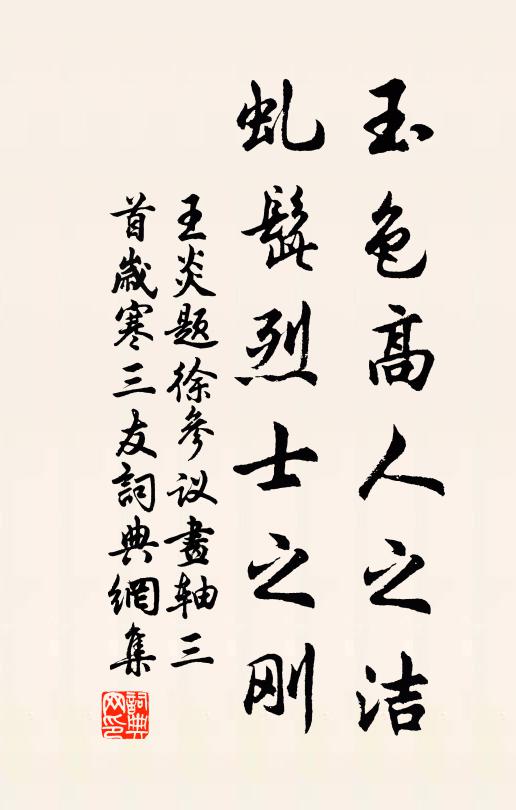 玉色高人之洁
虬髯烈士之刚
王炎题徐參议畫轴三
首歲寒三友詞典網集
詞典
网印